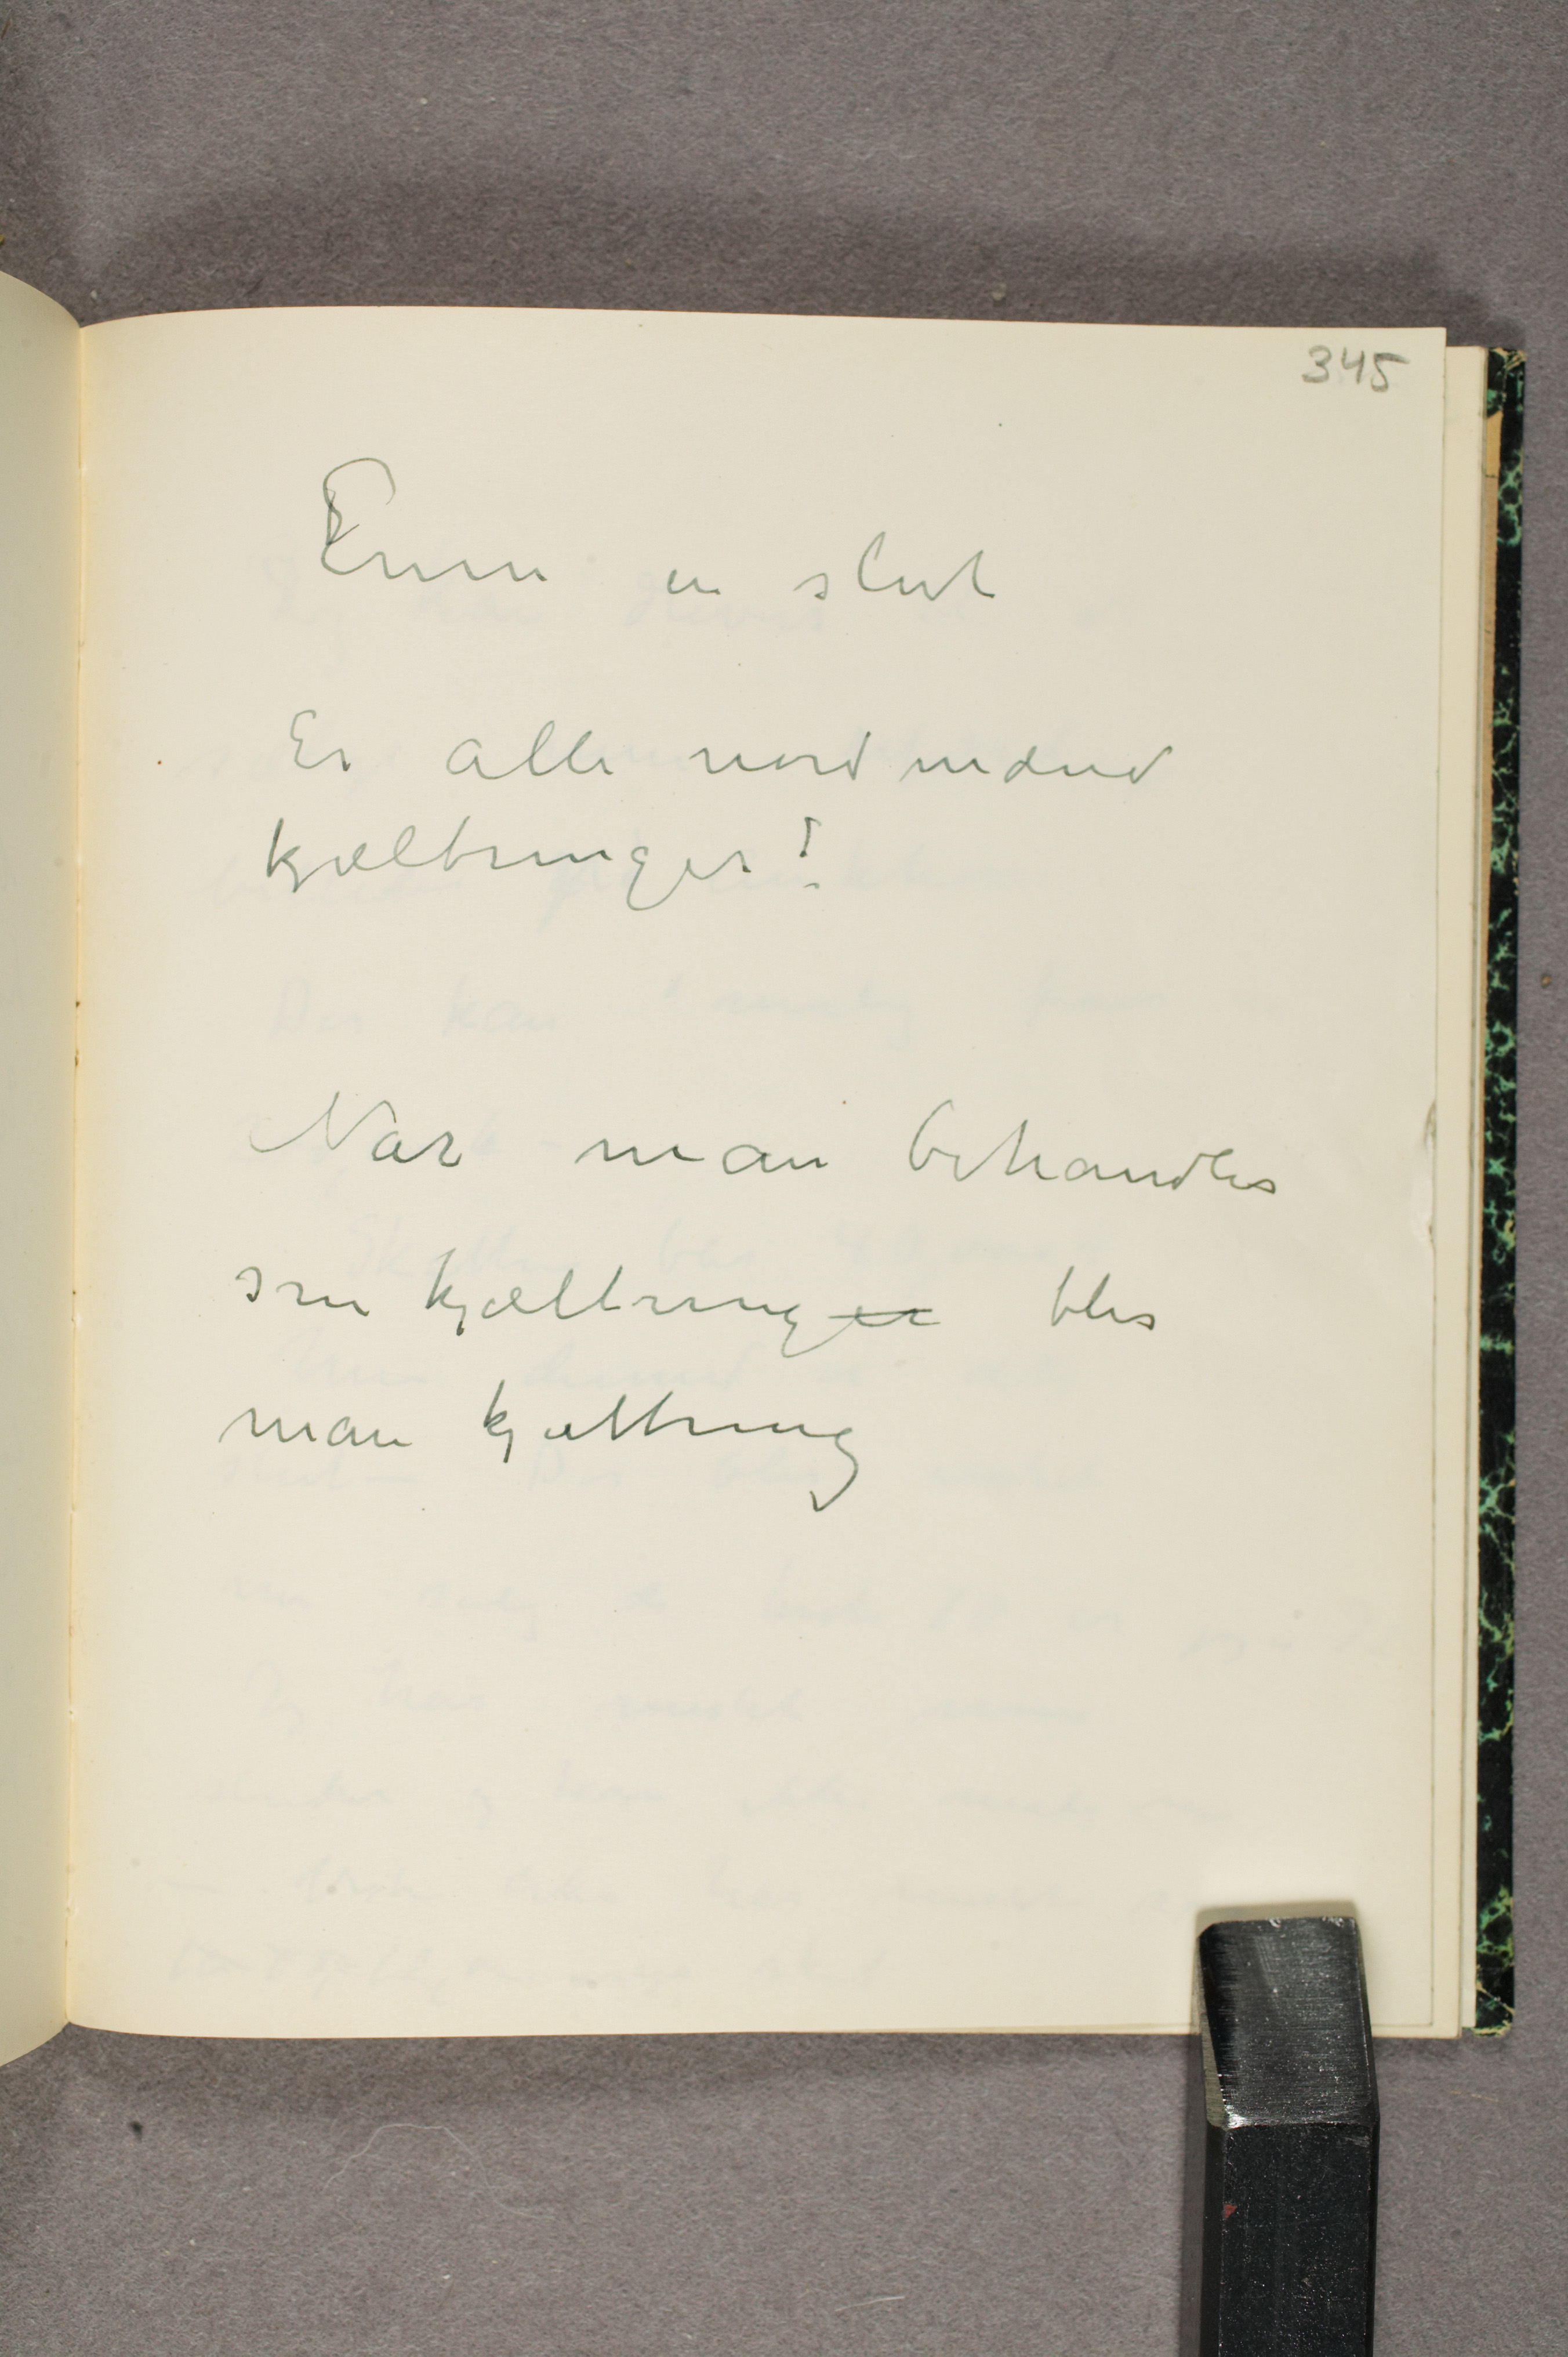 345
Evnen er slut
Er alle nordmænd
kjæltringer!
Når man behandles
som kjæltringer blir
man kjæltring